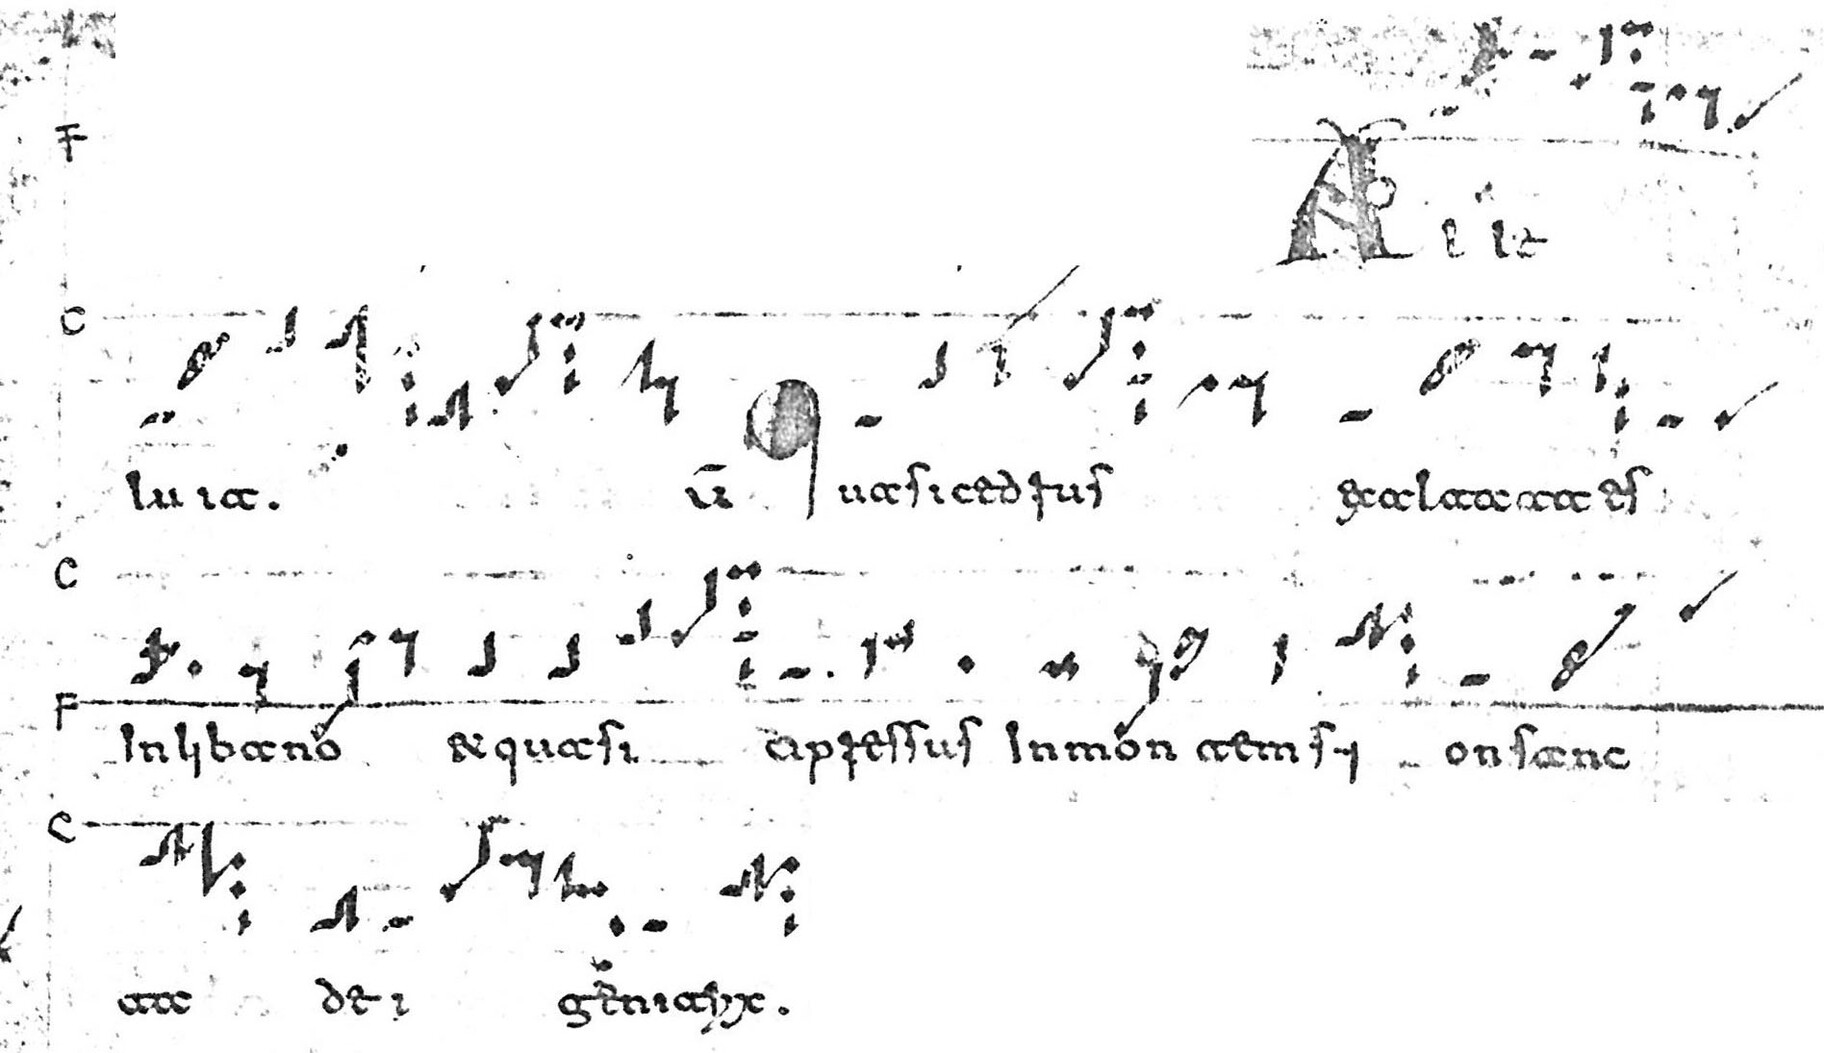 F
Alle
C
luia. V Quasi cedrus exaltata es
C
F
In libano & quasi cipressus In montem syon sanc
C
ta dei genitrix.